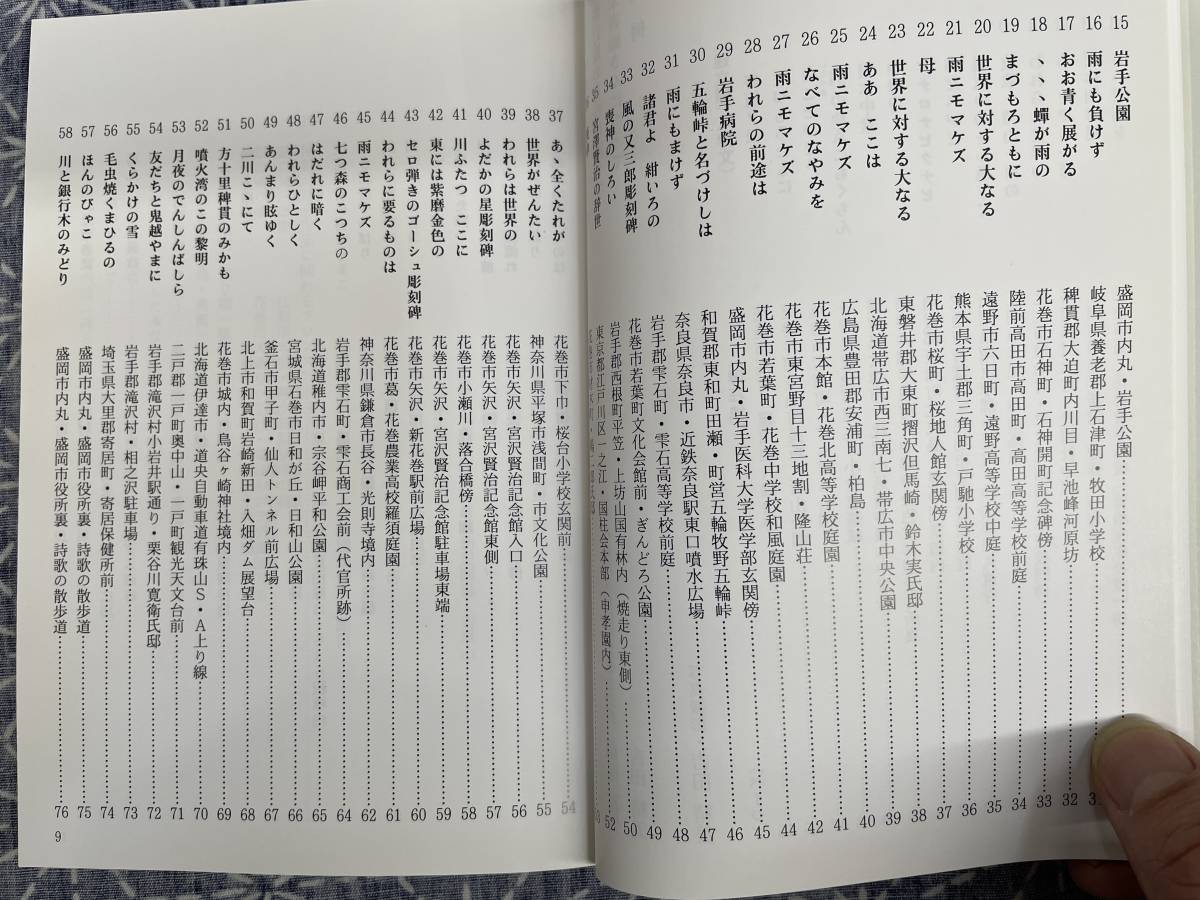 15 岩手公園 盛岡市内丸・岩手公園
16 雨にも負けず 岐阜県養老郡上石津町・牧田小学校 31
17 おお青く展がる 稗貫郡大迫町内川目・早池峰河原坊 32
18 ヽヽヽ蟬が雨の 花巻市石神町・石神開町記念碑傍 33
19 まづもろともに 陸前高田市高田町・高田高等学校前庭 34
20 世界に対する大なる 遠野市六日町・遠野高等学校中庭 35
21 雨ニモマケズ 熊本県宇土郡三角町・戸馳小学校 36
22 母 花巻市桜町・桜地人館玄関傍 37
23 世界に対する大なる 東磐井郡大東町摺沢但馬崎・鈴木実氏邸 38
24 ああ ここは 北海道帯広市西三南七・帯広市中央公園 39
25 雨ニモマケズ 広島県豊田郡安浦町・柏島 40
26 なべてのなやみを 花巻市本館・花巻北高等学校庭園 41
27 雨ニモマケズ 花巻市東宮野目十三地割・隆山荘 42
28 われらの前途は 花巻市若葉町・花巻中学校和風庭園 44
29 岩手病院 盛岡市内丸・岩手医科大学医学部玄関傍 45
30 五輪峠と名づけしは 和賀郡東和町田瀬・町営五輪牧野五輪峠 46
31 雨にもまけず 奈良県奈良市・近鉄奈良駅東口噴水広場 47
32 諸君よ 紺いろの 岩手郡雫石町・雫石高等学校前庭 48
33 風の又三郎彫刻碑 花巻市若葉町文化会館前・ぎんどろ公園 49
34 喪神のしろい 岩手郡西根町平笠・上坊山国有林内(焼走り東側) 50
35 宮澤賢治の辞世 東京都江戸川区一之江・国柱会本部(申孝園内) 52
37 あゝ全くたれが 花巻市下巾・桜台小学校玄関前 54
38 世界がぜんたい 神奈川県平塚市浅間町・市文化公園 55
39 われらは世界の 花巻市矢沢・宮沢賢治記念館入口 56
40 よだかの星彫刻碑 花巻市矢沢・宮沢賢治記念館東側 57
41 川ふたつ ここに 花巻市小瀬川・落合橋傍 58
42 東には紫磨金色の 花巻市矢沢・宮沢賢治記念館駐車場東端 59
43 セロ弾きのゴーシュ彫刻碑 花巻市矢沢・新花巻駅前広場 60
44 われらに要るものは 花巻市葛・花巻農業高校羅須庭園 61
45 雨ニモマケズ 神奈川県鎌倉市長谷・光則寺境内 62
46 七つ森のこつちの 岩手郡雫石町・雫石商工会前(代官所跡) 64
47 はだれに暗く 北海道稚内市・宗谷岬平和公園 65
48 われらひとしく 宮城県石巻市日和が丘・日和山公園 66
49 あんまり眩ゆく 釜石市甲子町・仙人トンネル前広場 67
50 二川こゝにて 北上市和賀町岩崎新田・入畑ダム展望台 68
51 方十里稗貫のみかも 花巻市城内・鳥谷ヶ崎神社境内 69
52 噴火湾のこの黎明 北海道伊達市・道央自動車道有珠山S・A上り線 70
53 月夜のでんしんばしら 二戸郡一戸町奥中山・一戸町観光天文台前 71
54 友だちと鬼越やまに 岩手郡滝沢村小岩井駅通り・栗谷川寛衛氏邸 72
55 くらかけの雪 岩手郡滝沢村・相之沢駐車場 73
56 毛虫焼くまひるの 埼玉県大里郡寄居町・寄居保健所前 74
57 ほんのぴゃこ 盛岡市内丸・盛岡市役所裏・詩歌の散歩道 75
58 川と銀行木のみどり 盛岡市内丸・盛岡市役所裏・詩歌の散歩道 76
9